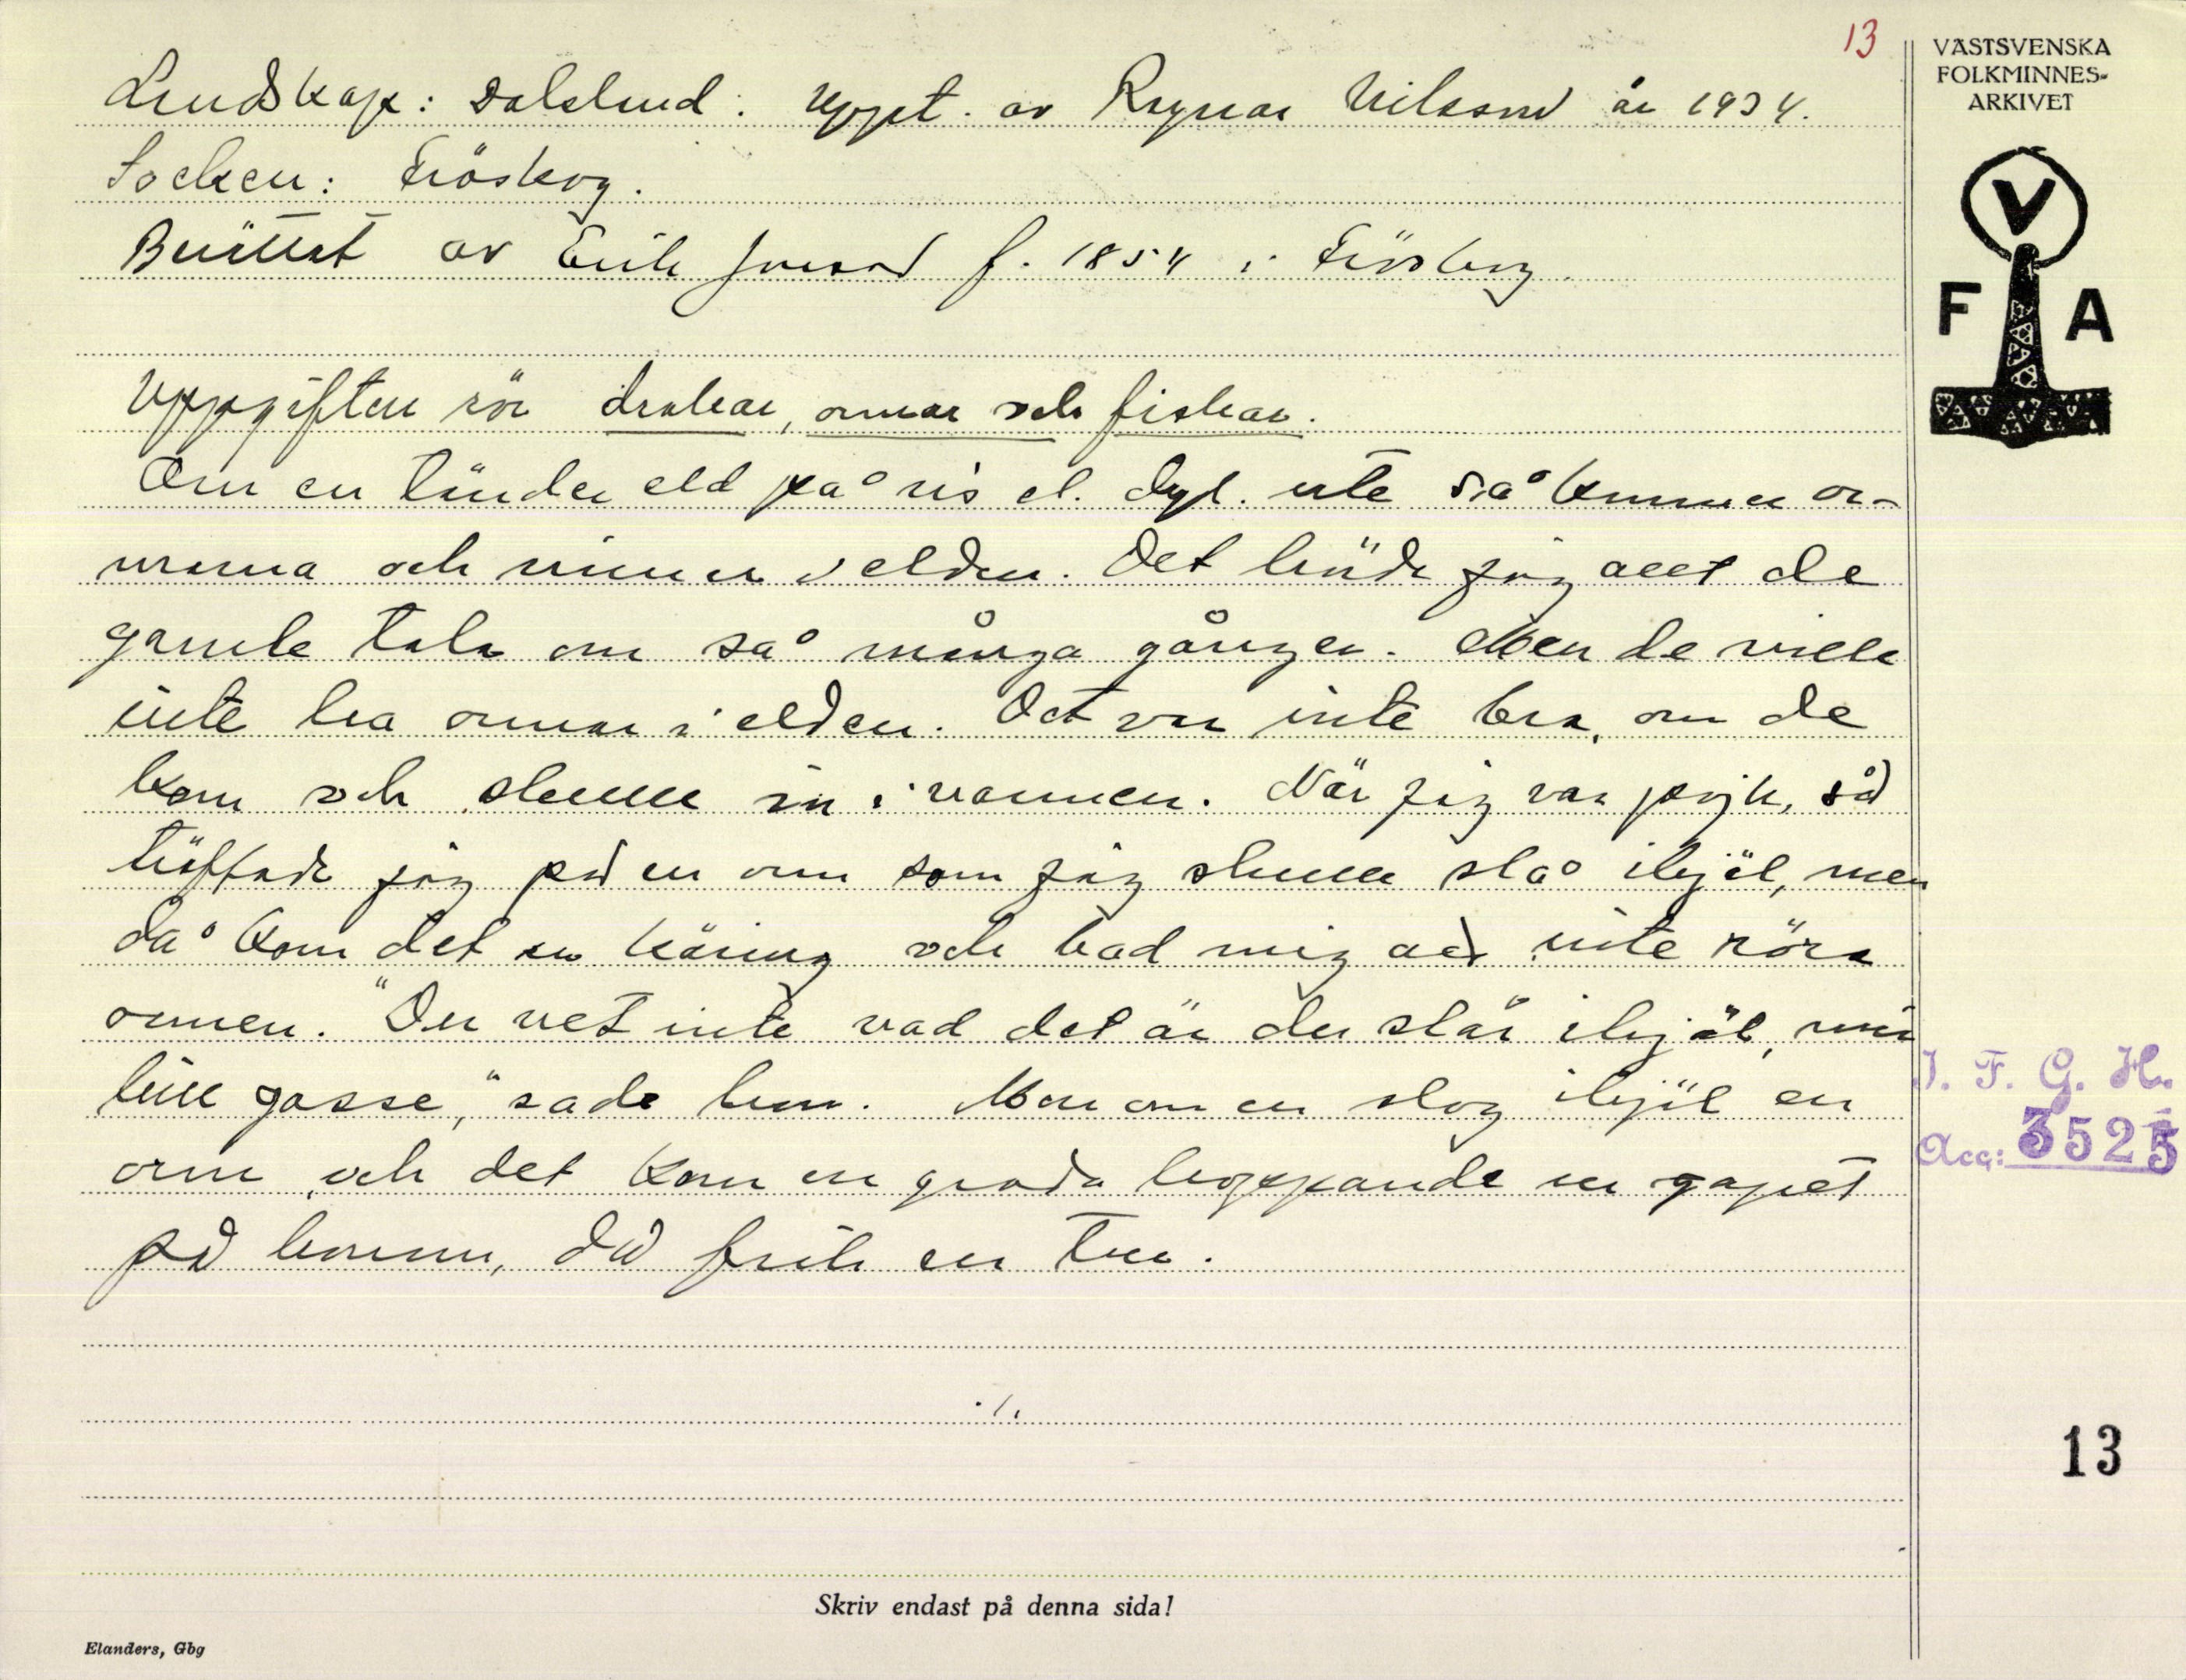 13
VÄSTSVENSKA
FOLKMINNES-
ARKIVET
V
F A
Landskap: Dalsland. Uppt. av Ragnar Nilsson år 1934.
Socken: Fröskog.
Berättat av Erik Jonsson f. 1854 i Fröskog.
Uppgiften rör drakar, ormar och fiskar.
Om en tänder eld på ris el. dyl. ute så kommer or-
marna och rinner i elden. Det hörde jag allt de
gamle tala om så många gånger. Men de ville
inte ha ormar i elden. Det var inte bra, om de
kom och skulle in i varmen. När jag var pojk, så
träffade jag på en orm som jag skulle slå ihjäl, men
då kom det en käring och bad mig att inte röra
ormen. "Du vet inte vad det är du slår ihjäl, min
lille gosse," sade hon. Men om en slog ihjäl en
orm, och det kom en groda hoppande ur gapet
på honom, då fick en tur.
./.
J. F. G. H.
Acc: 3525
13
Skriv endast på denna sida!
Elanders, Gbg